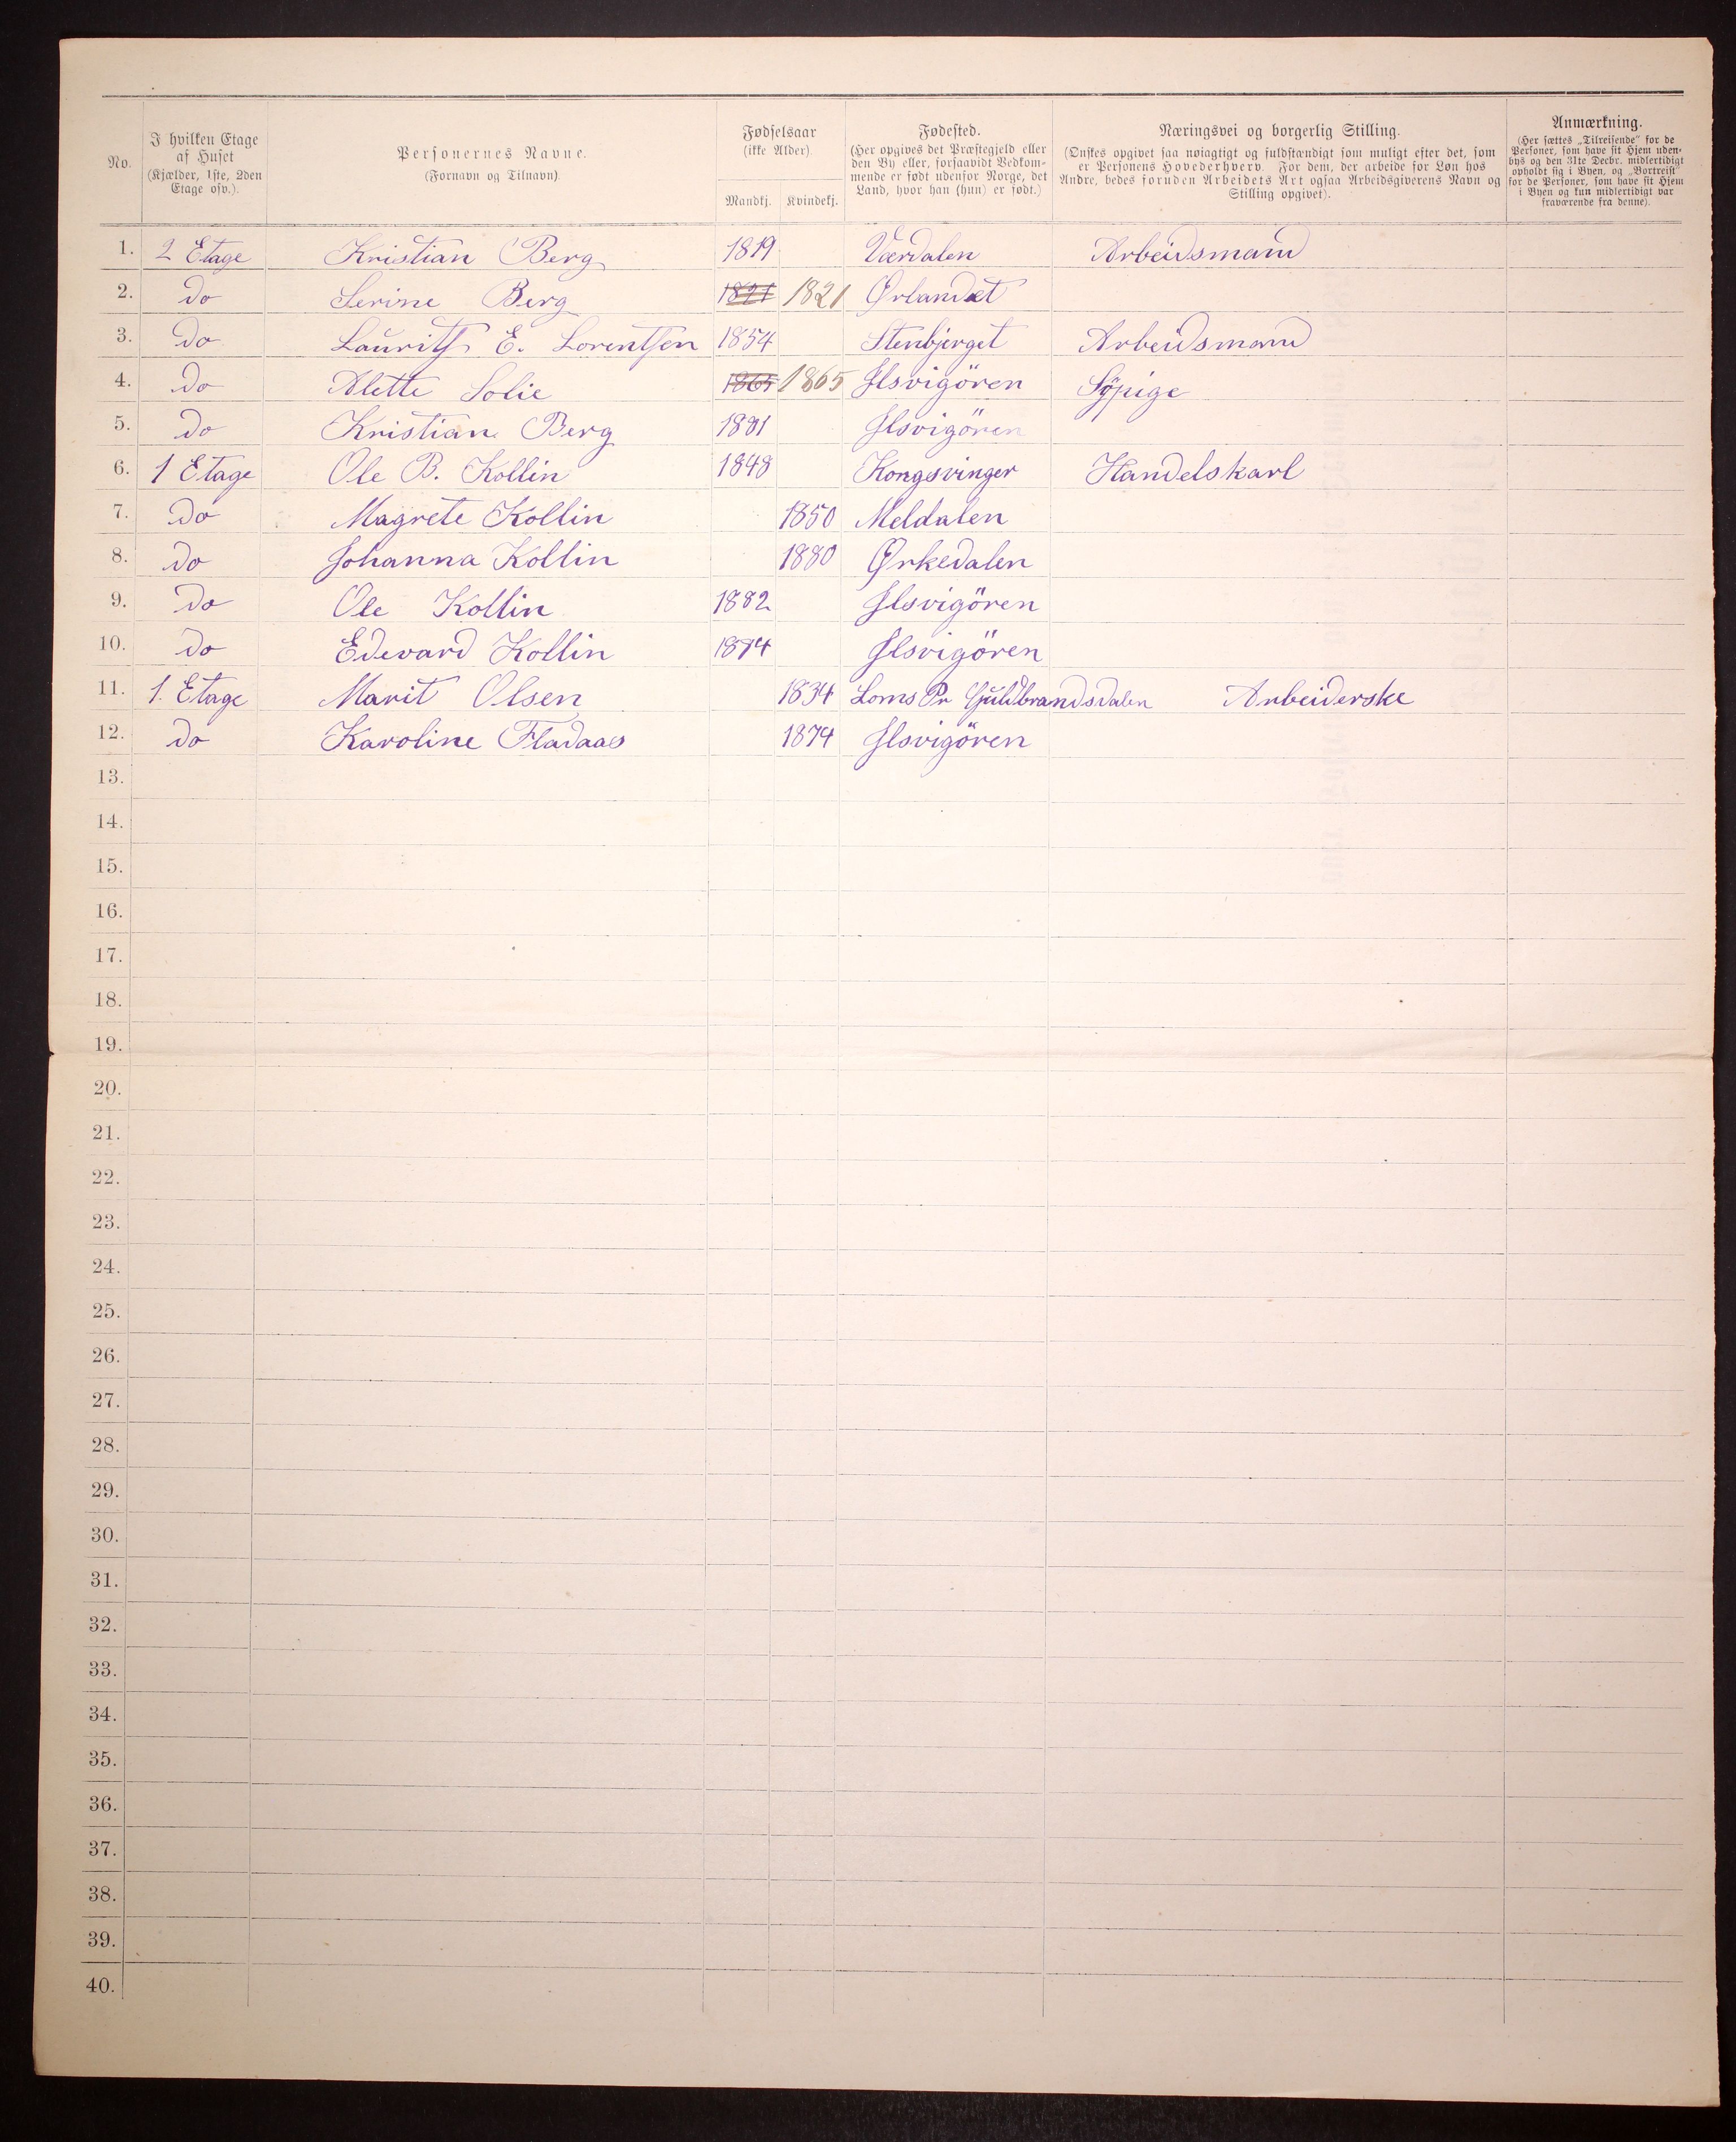 No.
I hvilken Etage
af Huset
(Kjælder, 1ste, 2den
Etage osv.).
Personernes Navne.
(Fornavn og Tilnavn)
Fødselsaar
(ikke Alder).
Mandkj. Kvindekj.
Fødested.
(Her opgives det Præstegjeld eller
den By eller, forsaavidt Vedkom-
mende er født udenfor Norge, det
Land, hvor han (hun) er født.)
Næringsvei og borgerlig Stilling.
(Ønskes opgivet saa nøiagtigt og fuldstændigt som muligt efter det, som
er Personens Hovederhverv. For dem, der arbeide for Løn hos
Andre, bedes foruden Arbeidets Art ogsaa Arbeidsgiverens Navn og
Stilling opgivet).
Anmærkning.
(Her sættes „Tilreisende" for de
Personer, som have sit Hjem uden-
bys og den 31te Decbr. midlertidigt
opholdt sig i Byen, og „Bortreist"
for de Personer, som have sit Hjem
i Byen og kun midlertidigt var
fraværende fra denne).
1. 2 Etage Kristian Berg 1819 Værdalen Arbeidsmand
2. Do Serine Berg 1821 1821 Ørlandet
3. Do Lauritz E. Lorentsen 1854 Stenbjerget Arbeidsmand
4. Do Alette Solie 1865 1865 Ilsvigören Sypige
5. Do Kristian Berg 1881 Ilsvigören
6. 1 Etage Ole B. Kollin 1848 Kongsvinger Handelskarl
7. Do Magrete Kollin 1850 Meldalen
8. Do Johanna Kollin 1880 Ørkedalen
9. Do Ole Kollin 1882 Ilsvigören
10. Do Edevard Kollin 1874 Ilsvigören
11. 1. Etage Marit Olsen 1834 Loms Pr Guldbrandsdalen Arbeiderske
12. do Karoline Fladaas 1874 Ilsvigören
13.
14.
15.
16.
17.
18.
19.
20.
21.
22.
23.
24.
25.
26.
27.
28.
29.
30.
31.
32.
33.
34.
35.
36.
37.
38.
39.
40.